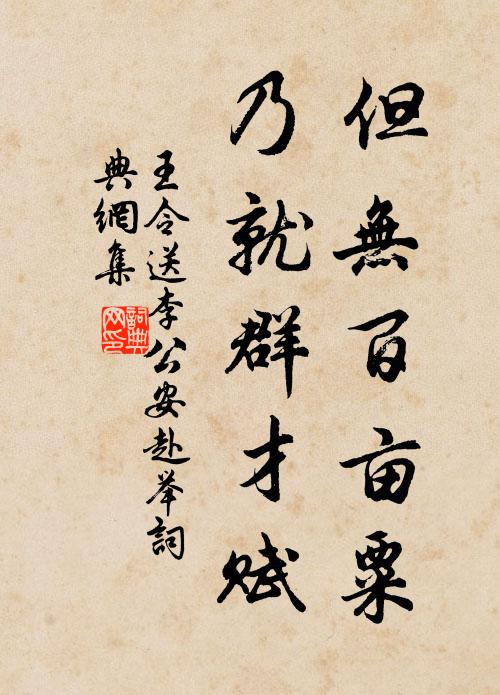 但無百亩粟
乃就群才赋
王令送李公安赴举詞
典網集
詞典
网印